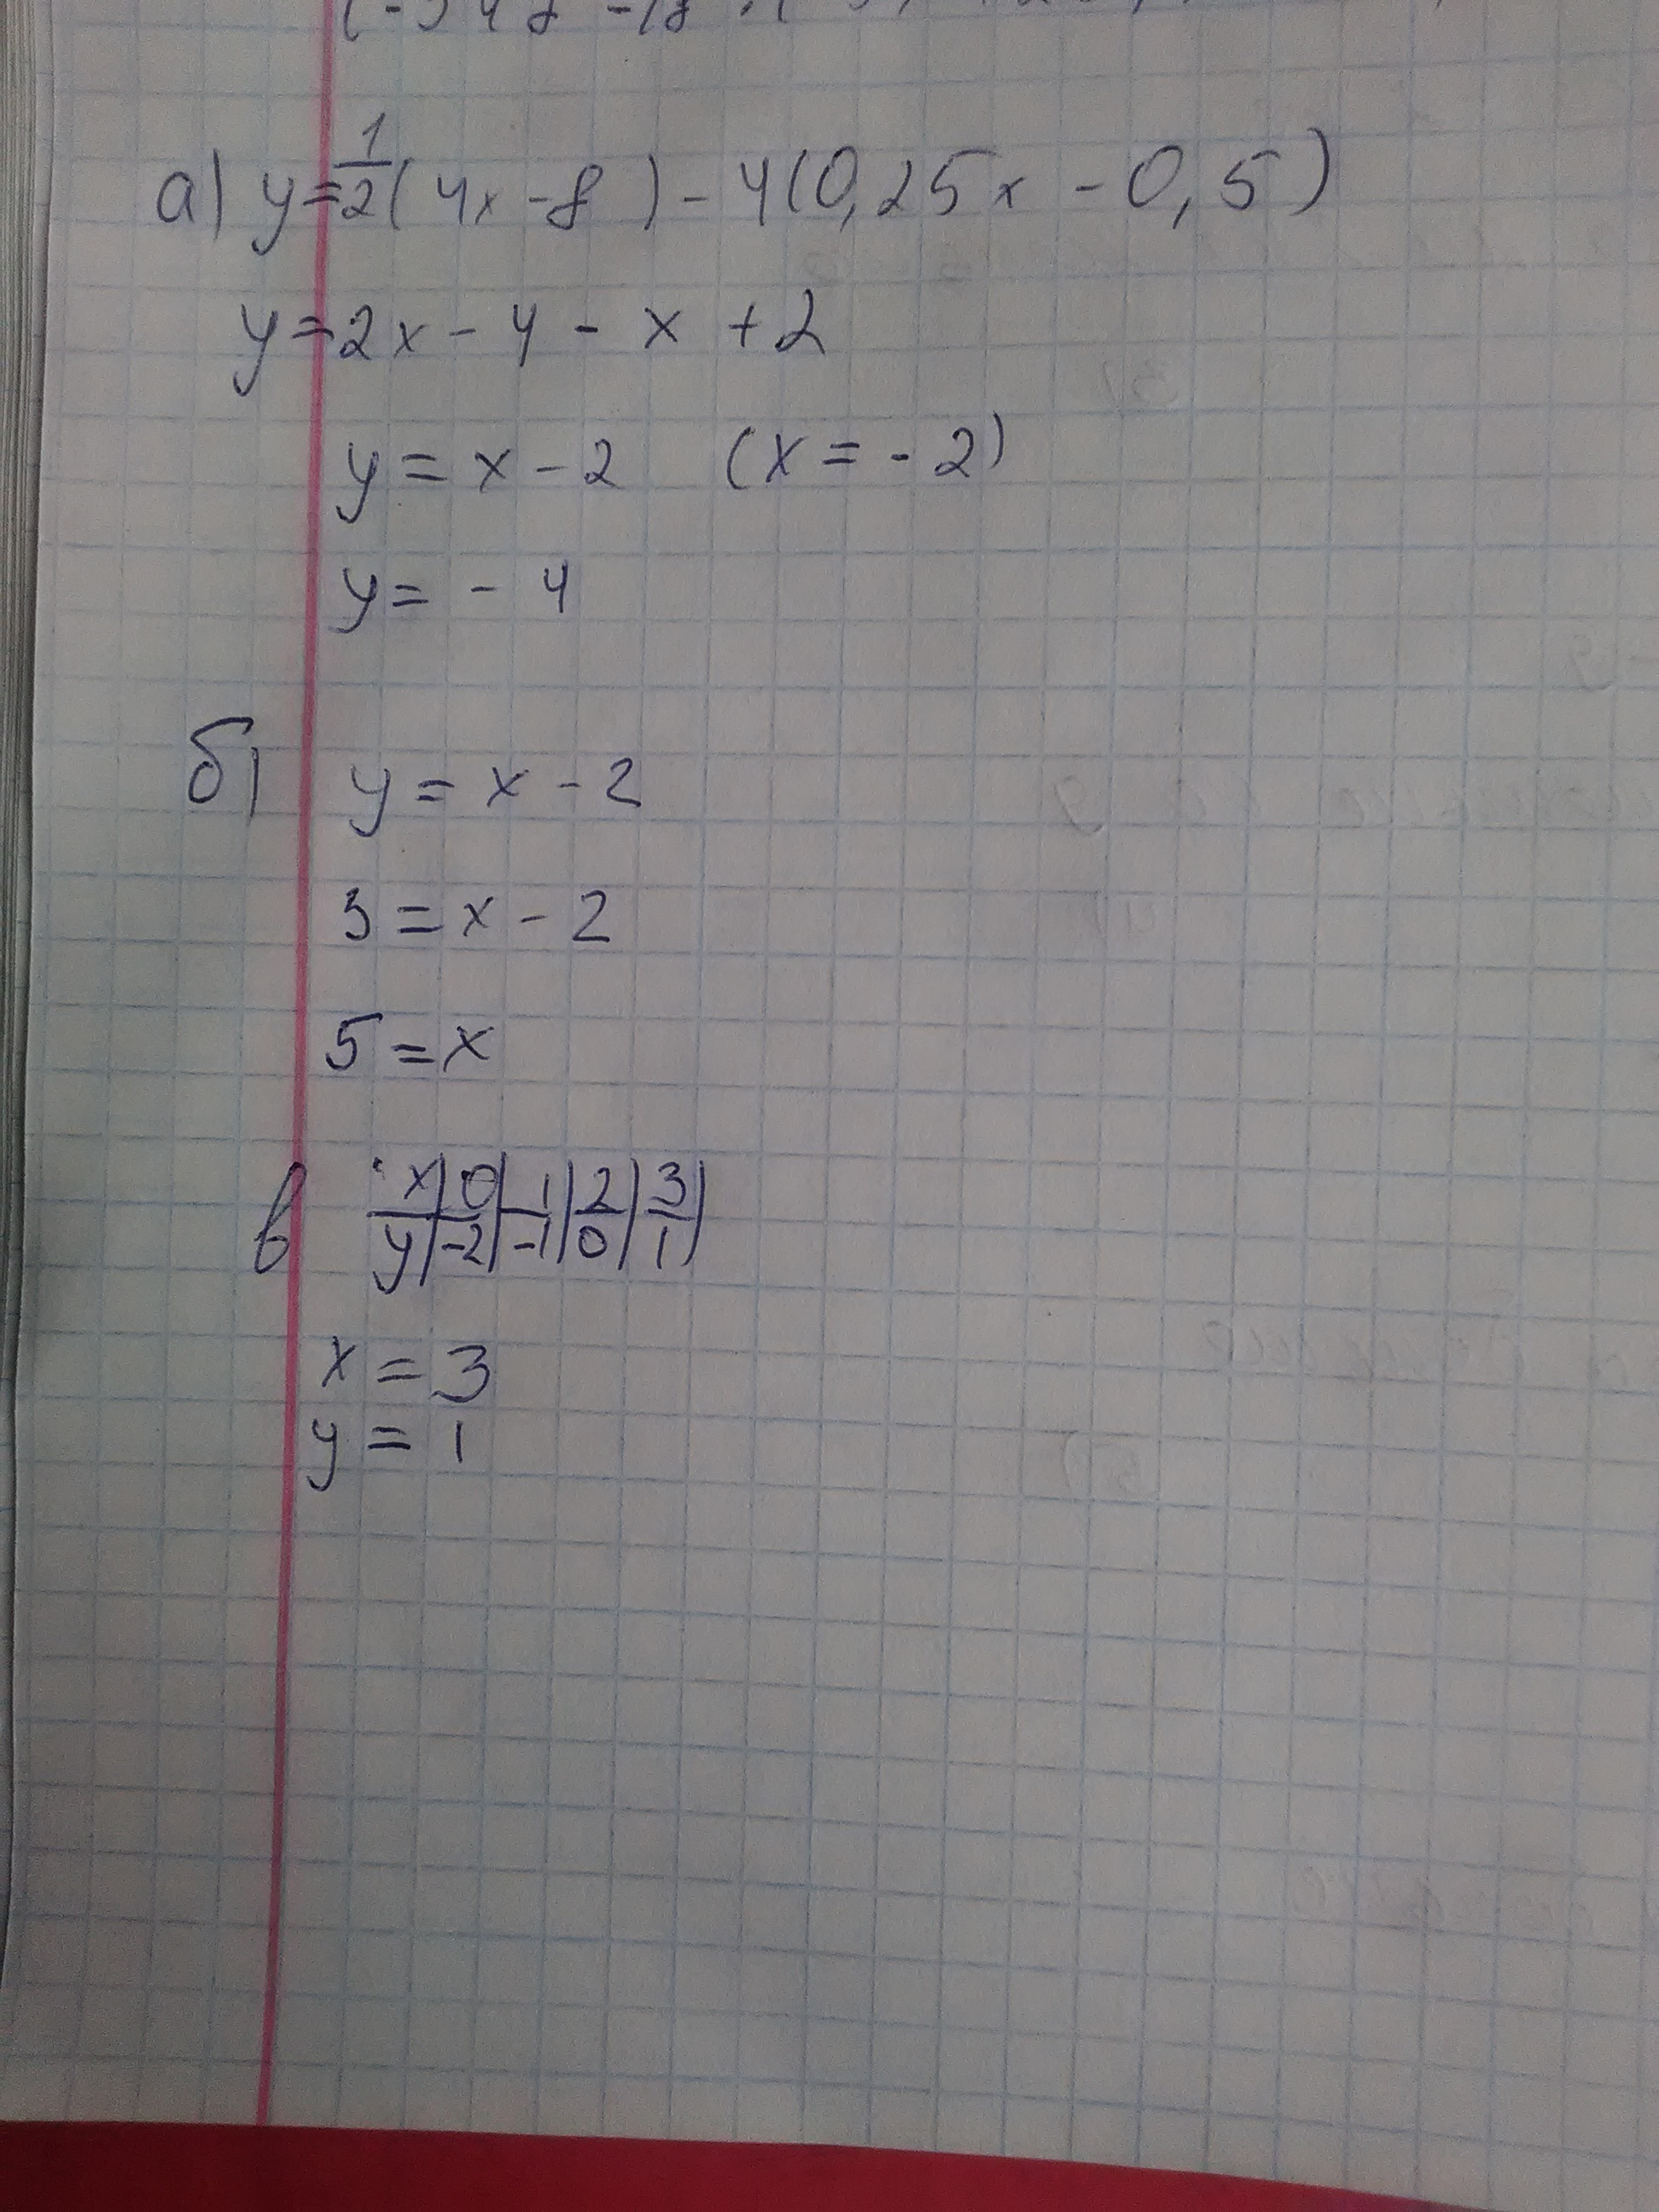 а) y = 1/2 (4x - 8) - 4(0,25x - 0,5)
y = 2x - 4 - x + 2
y = x - 2 (x = - 2)
y = - 4
б) y = x - 2
3 = x - 2
5 = x
в x | 0 | 1 | 2 | 3 |
y | -2 | -1 | 0 | 1 |
x = 3
y = 1